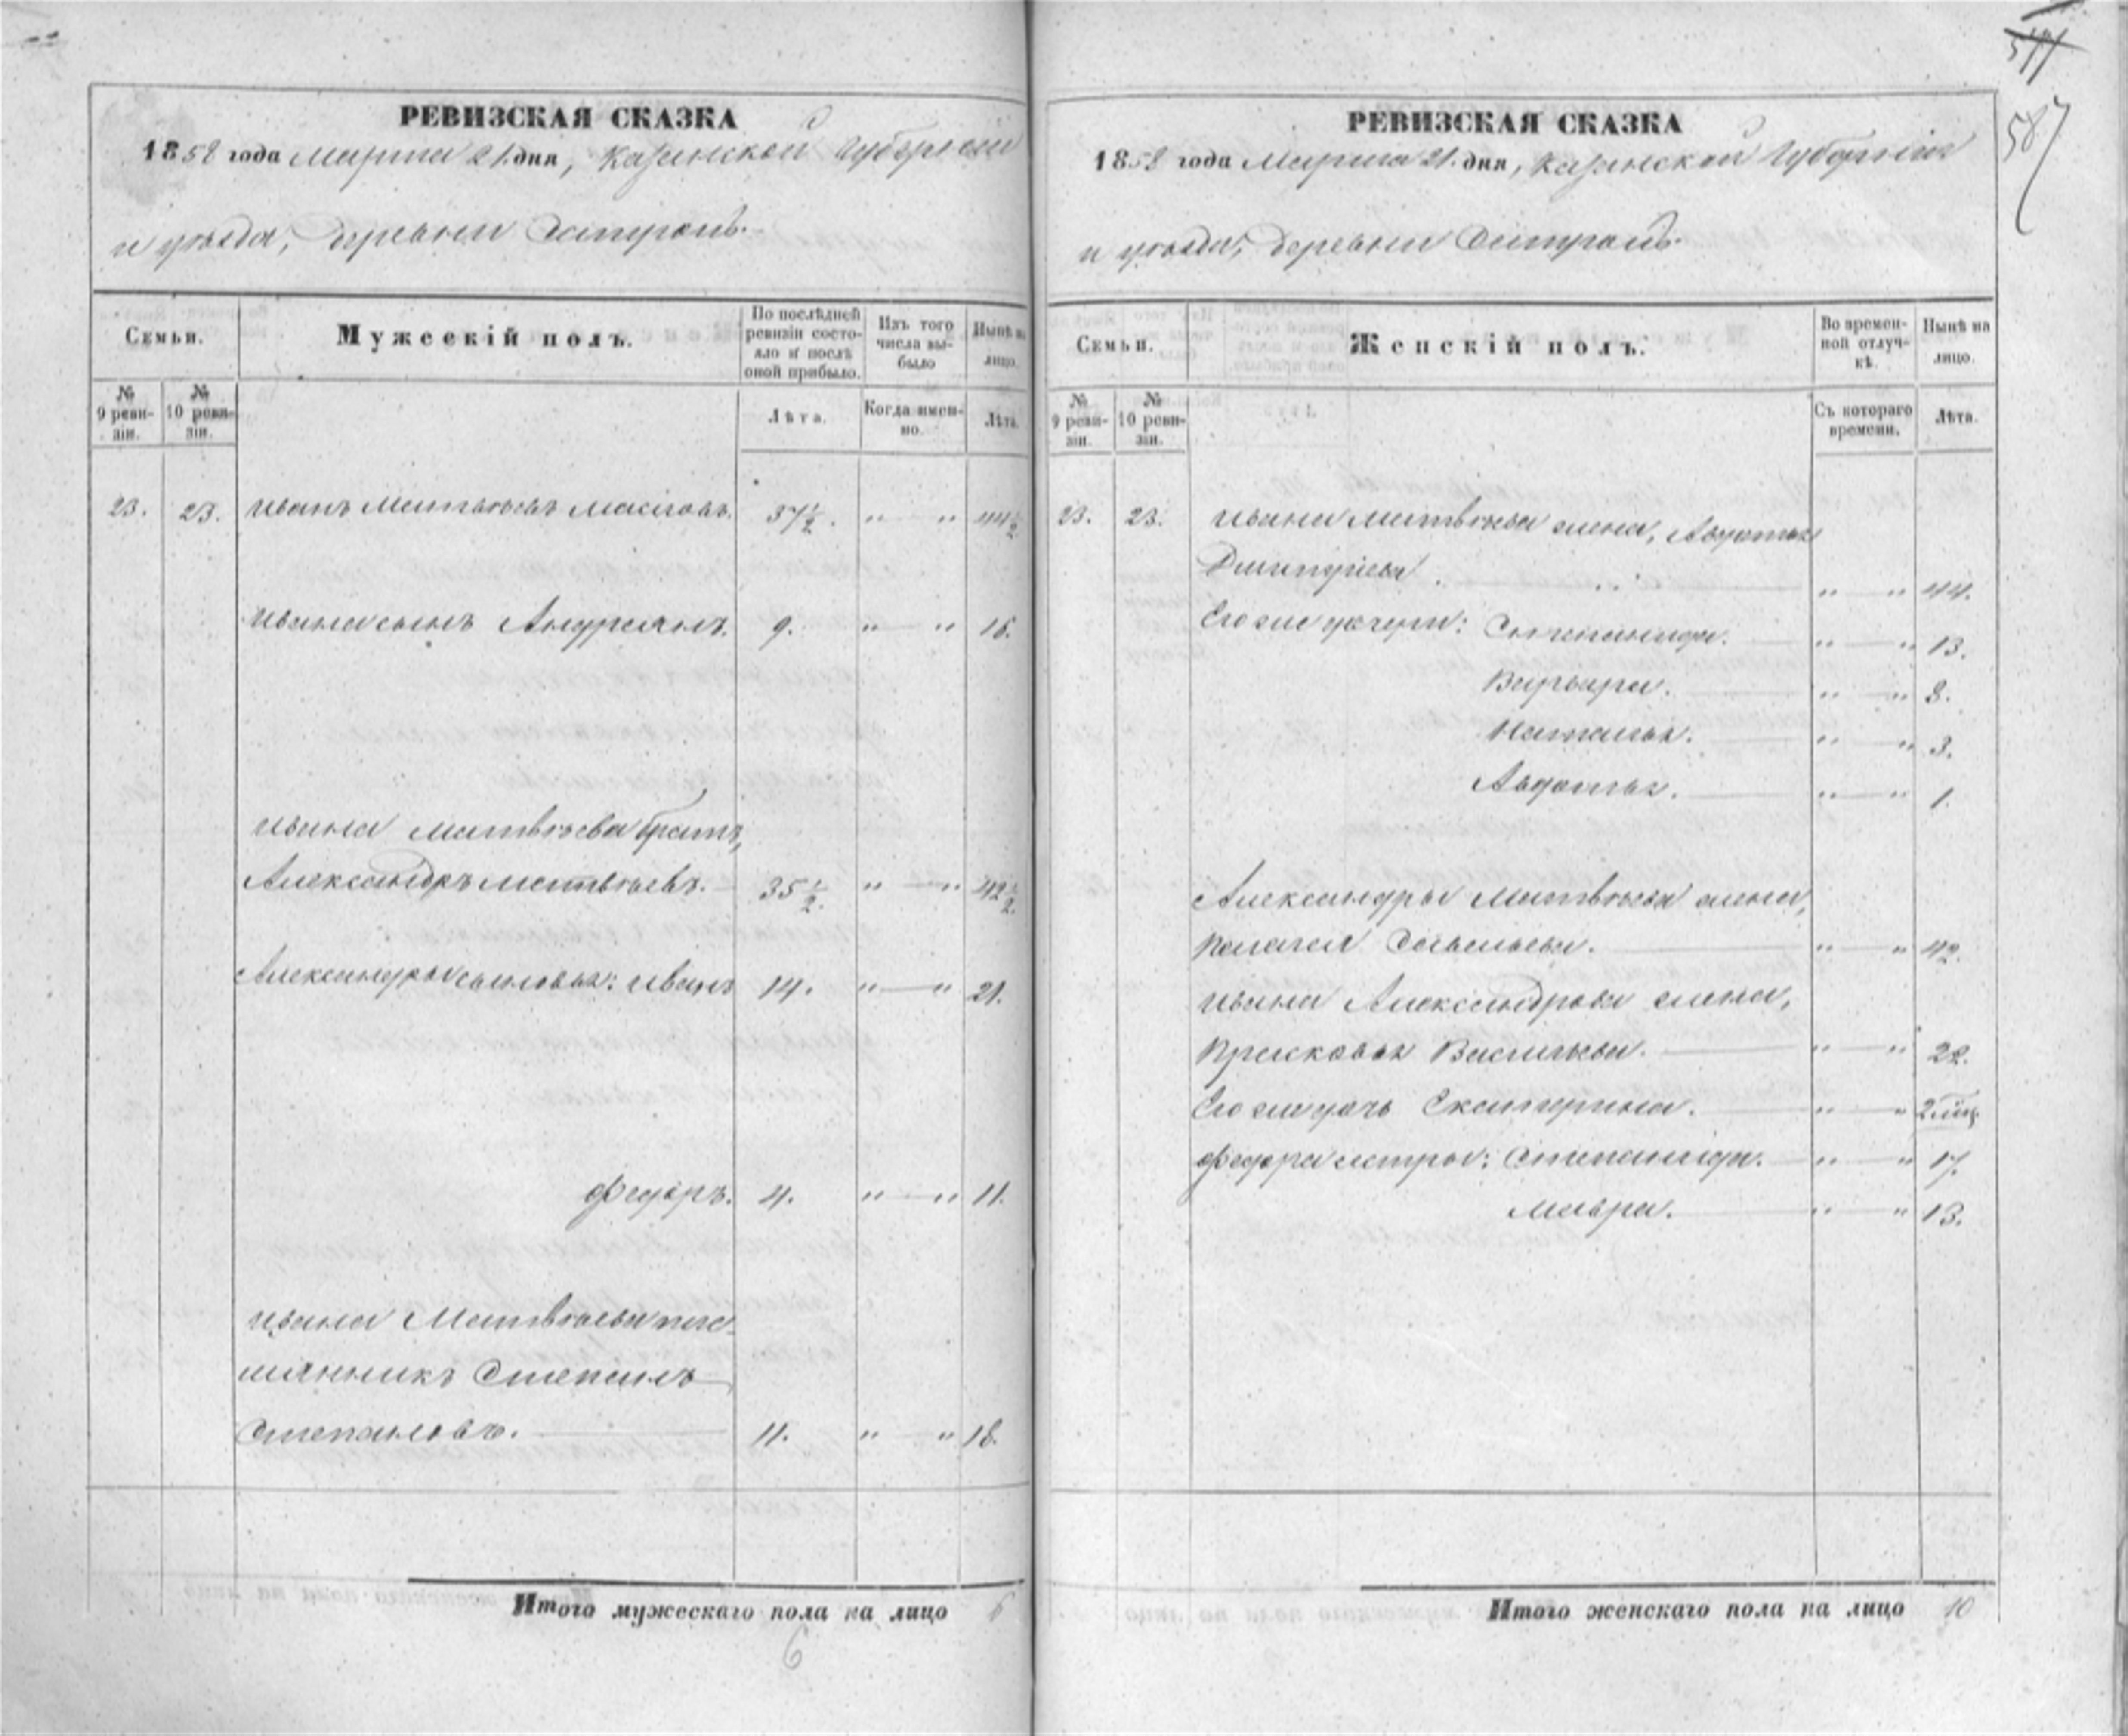 РЕВИЗСКАЯ СКАЗКА
1858 года Марта 21 дня, Казанской Губерніи
и уѣзда, деревни
Семьи.
Мужескій полъ.
По послѣдней ревизіи состояло и послѣ оной прибыло.
Изъ того числа выбыло
Нынѣ на лицо.
№ 9 ревизіи.
№ 10 ревизіи.
Лѣта.
Когда именно.
Лѣта.
23. 23. Иванъ Матвѣевъ 37½. " " 44½
Ивана сынъ Андреянъ. 9. " " 16.
Ивана Матвѣева братъ,
Александръ Матвѣевъ. 35½. " " 42½.
Александра сыновья: Иванъ 14. " " 21.
Федоръ. 4. " " 11.
Ивана Матвѣева пле-
мянникъ Степанъ
Степановъ. 11. " " 18.
Итого мужескаго пола на лицо 6
6
577
587
РЕВИЗСКАЯ СКАЗКА
1858 года Марта 21 дня, Казанской Губерніи
и уѣзда, деревни
Семьи.
Женскій полъ.
Во временной отлучкѣ.
Нынѣ на лицо.
№ 9 ревизіи.
№ 10 ревизіи.
Съ котораго времени.
Лѣта.
23. 23. Ивана Матвѣева жена, Авдотья
Дмитріева. " " 44.
Его же дочери: Степанида. " " 13.
Варвара. " " 8.
Наталья. " " 3.
Авдотья. " " 1.
Александра Матвѣева жена,
Пелагея Савельева. " " 42.
Ивана Александрова жена,
Прасковья Васильева. " " 22.
Его же дочь Екатерина. " " 2 мѣс.
Федора сестры: Степанида. " " 17.
Мавра. " " 13.
Итого женскаго пола на лицо 10